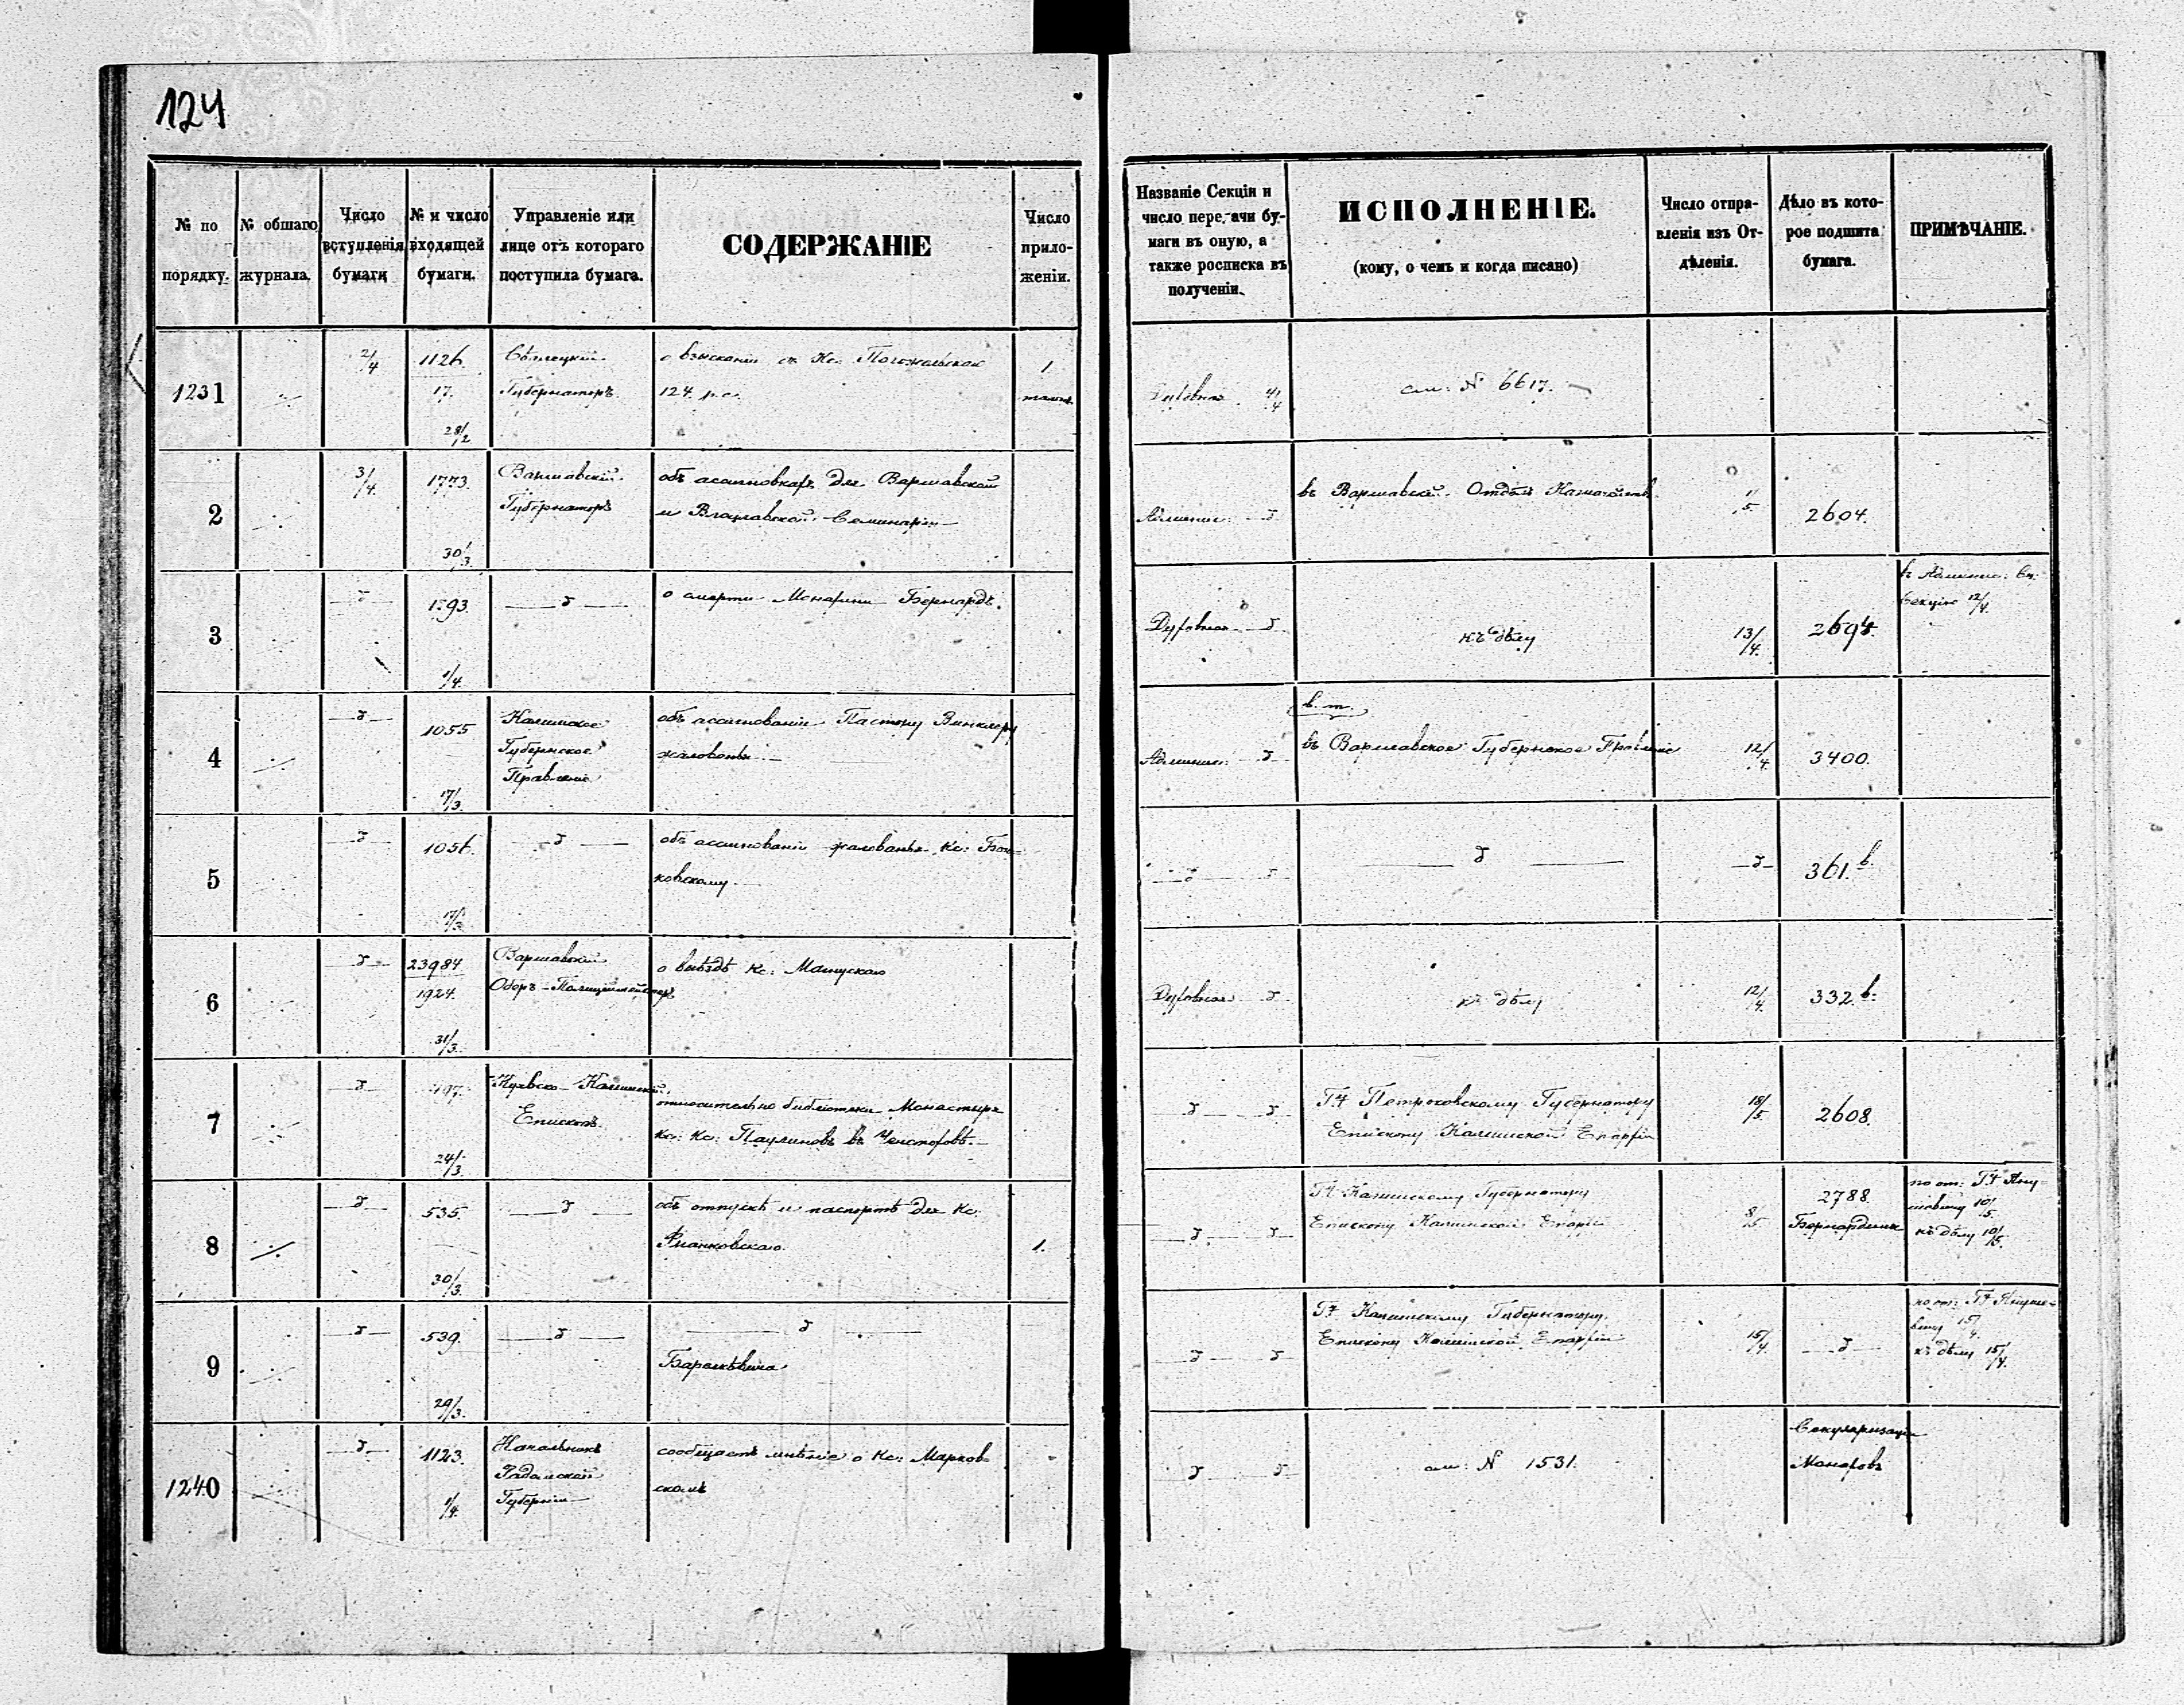 124
№ по порядку.
№ общаго журнала.
Число вступленія бумаги
№ и число входящей бумаги.
Управленіе или лице отъ котораго поступила бумага.
СОДЕРЖАНІЕ
Число прило-
женіи.
Названіе Секціи и
число передачи бу-
маги въ оную, а
также росписка въ
полученіи.
ИСПОЛНЕНІЕ.
(кому, о чемъ и когда писано)
Число отпра-
вленія изъ От-
дѣленія.
Дѣло въ кото-
рое подшита
бумага.
ПРИМѢЧАНІЕ.
1231
2/4
1126
17.
28/2
Сѣдлецкій
Губернаторъ
о взысканіи съ Кс.
124 р. с.
1
Духовная 4/4
см: N 6617.
2
3/4.
1773.
30/3.
Варшавскій
Губернаторъ
объ ассигновкахъ для Варшавской
и Влоцлавской Семинаріи
Админис: д
въ Варшавскій Отдѣлъ Казначейства
1/5
2604.
3
д
1593
1/4.
д
о смерти Монахини Бернардъ.
Духовная д
къ дѣлу
13/4.
2694.
въ Админис:
Секцію 12/4.
4
д
1055
17/3.
Калишское
Губернское
Правленіе
объ ассигнованіи Пастору Винклеру
жалованья
Админис: д
в. т.
въ Варшавское Губернское Правленіе
12/4.
3400.
5
д
1056.
17/3
д
объ ассигнованіи жалованья Кс:
ковскому
д д
д
д
361.в.
6
д
23984
1924.
31/3.
Варшавскій
Оберъ-Полицеймейстеръ
о выѣздѣ Кс: Матускаго
Духовная д
къ дѣлу
12/4.
332.в.
7
д
497.
24/3.
Куявско-Калишскій
Епископъ
относительно библіотеки Монастыря
Кс: Кс: Паулиновъ въ Ченстоховѣ.
д д
Г-ну Петроковскому Губернатору
Епископу Калишской Епархіи
18/5.
2608.
8
д
535.
30/3.
д
объ отпускѣ и паспортѣ для Кс.
1.
д д
Г-ну Калишскому Губернатору
Епископу Калишской Епархіи
8/5.
2788.
Бернардины
къ дѣлу 10/5.
9
д
539.
29/3.
д
д
д д
Г-ну Калишскому Губернатору.
Епископу Калишской Епархіи
15/4.
д
къ дѣлу 15/4.
1240
д
1123.
1/4.
Начальникъ
Радомской
Губерніи
сообщаетъ мнѣніе о Кс: Марков-
скомъ
д д
см: N 1531.
Секуляризація
Монаховъ